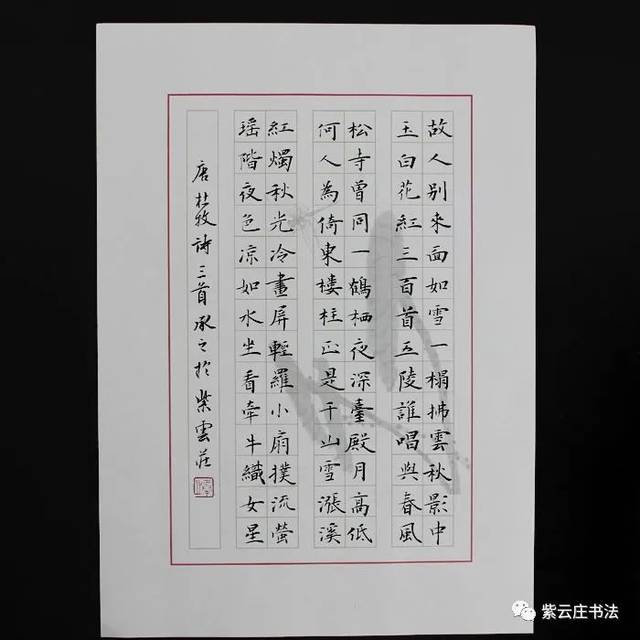 故人别來面如雪一榻拂雲秋影中
玉白花紅三百首五陵誰唱與春風
松寺曾同一鶴栖夜深臺殿月高低
何人為倚東樓柱正是千山雪漲溪
紅燭秋光冷畫屏輕羅小扇撲流螢
瑶階夜色凉如水坐看牵牛織女星
唐杜牧詩三首承之於紫雲莊
紫云庄书法